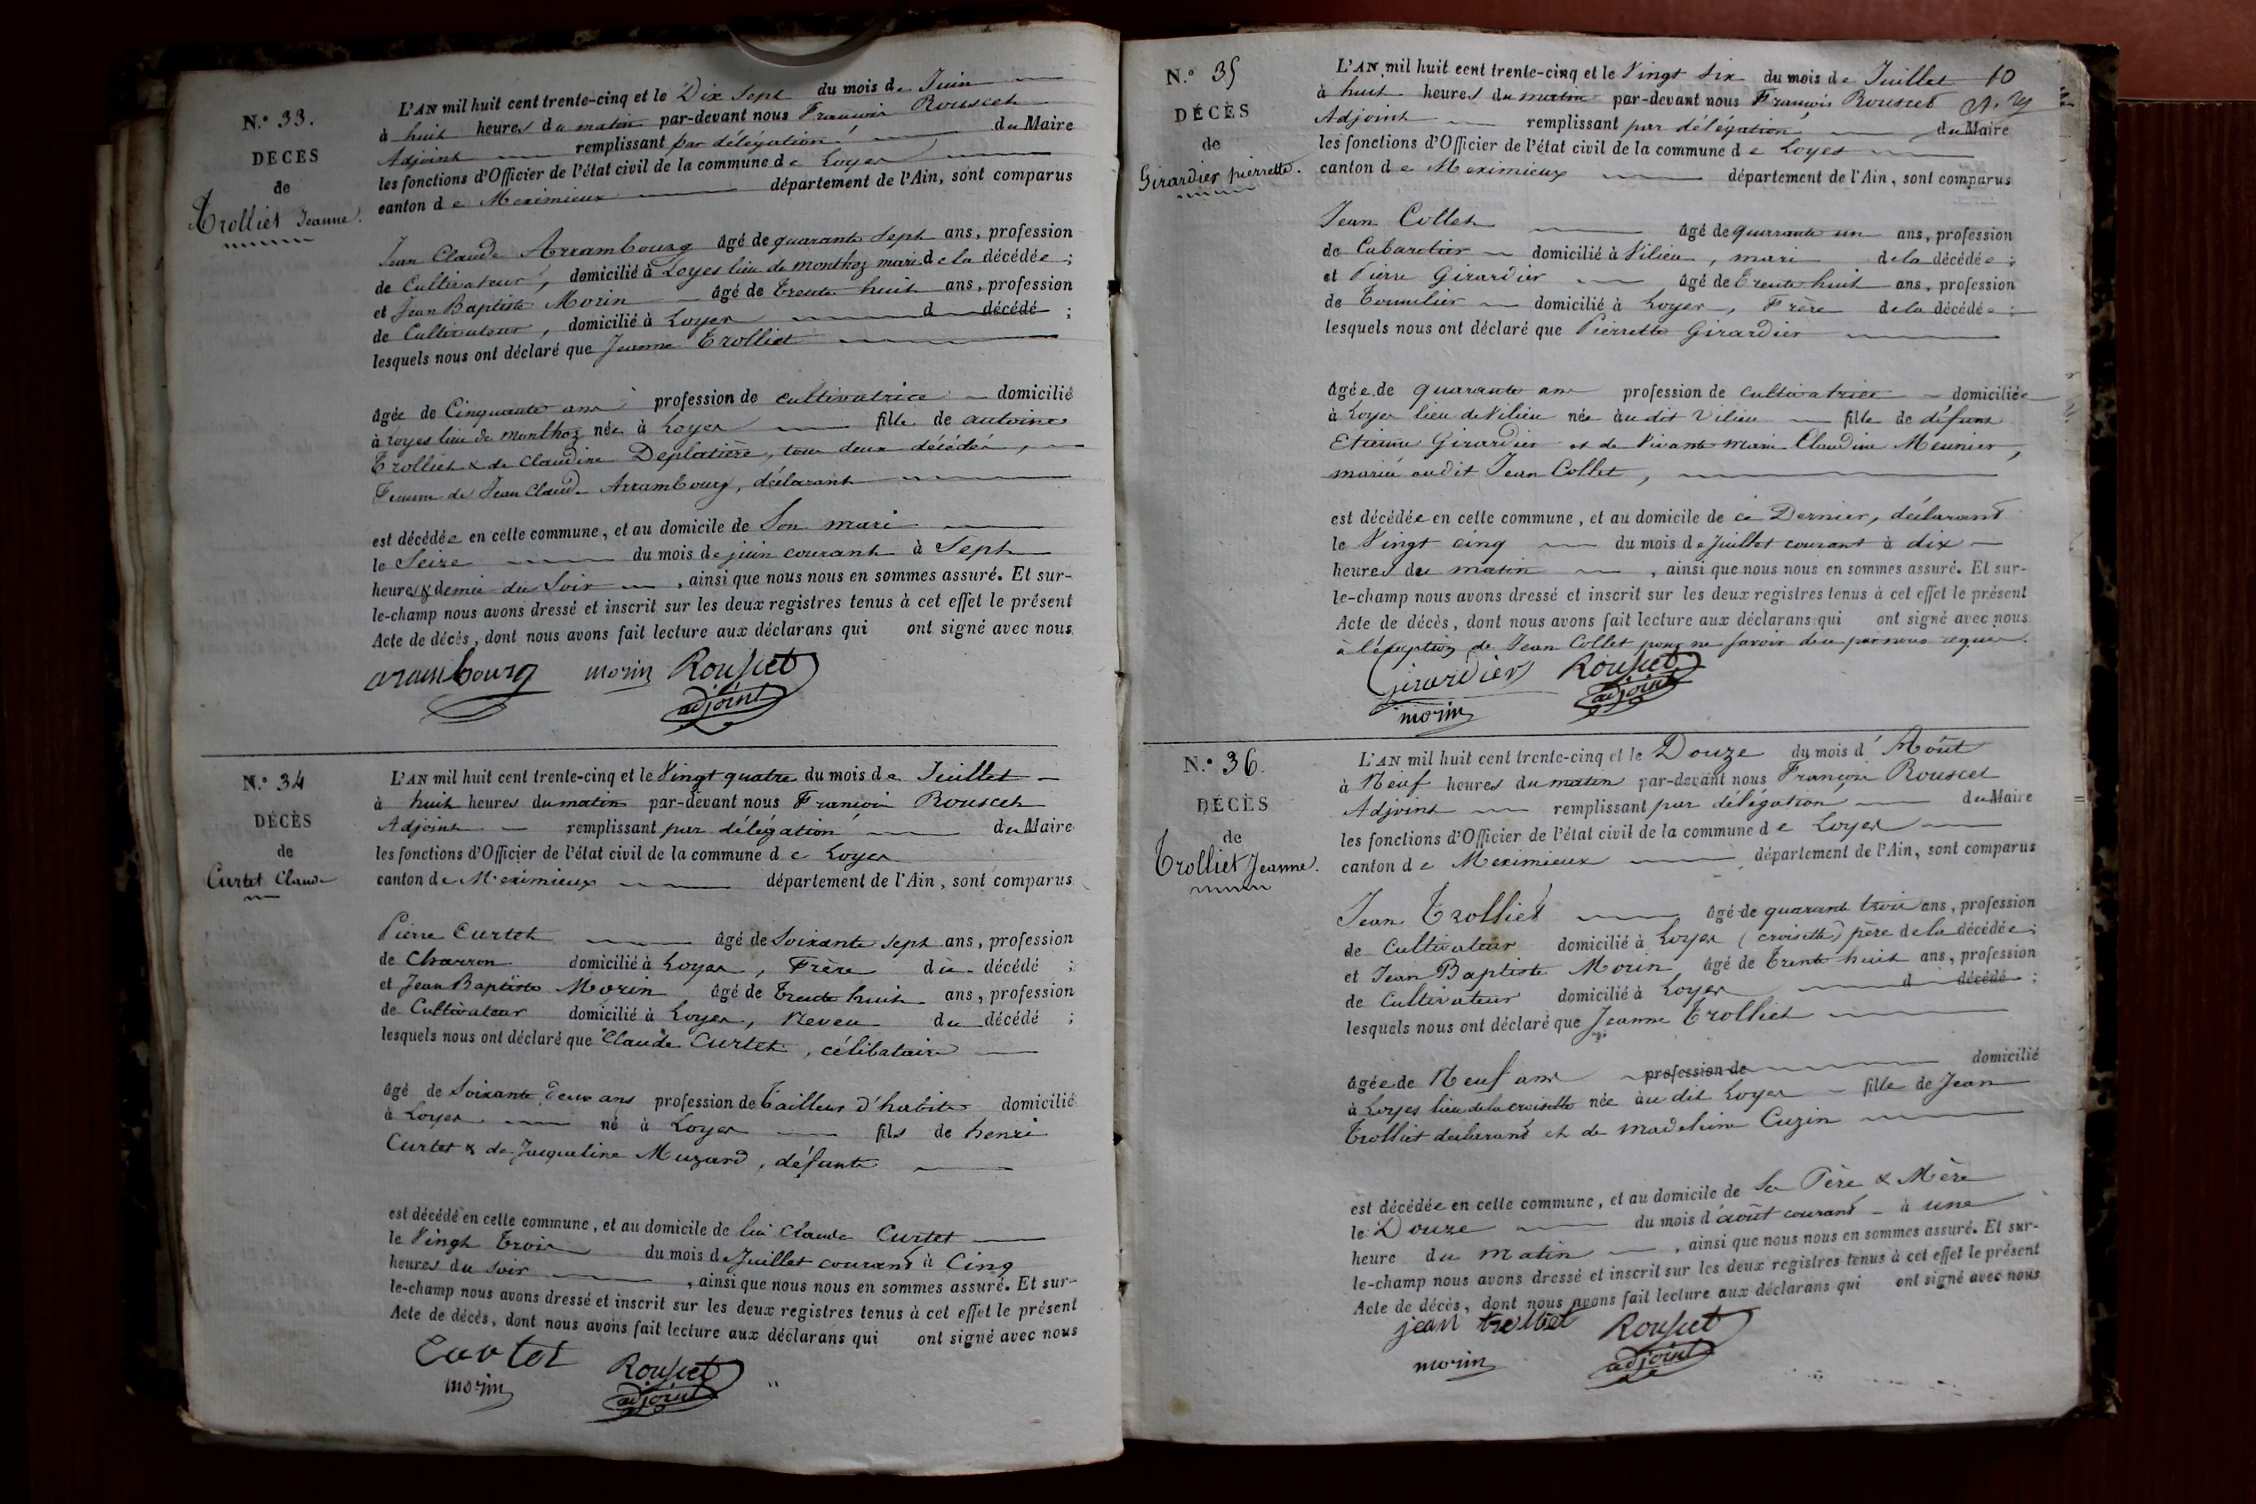 N.° 33.
DÉCÈS
de
Trolliet Jeanne.
L'AN mil huit cent trente-cinq et le Dix Sept du mois de Juin
à huit heures du matin par-devant nous François Rousset
Adjoint remplissant par délégation du Maire
les fonctions d'Officier de l'état civil de la commune de Loyes
canton de Meximieux département de l'Ain, sont comparus
Jean Claude Arrambourg âgé de quarante Sept ans, profession
de Cultivateur, domicilié à Loyes lieu de monthoz mari de la décédée ;
et Jean Baptiste Morin âgé de trente huit ans, profession
de Cultivateur, domicilié à Loyes d décédé ;
lesquels nous ont déclaré que Jeanne Trolliet
âgée de Cinquante ans profession de cultivatrice domicilié
à Loyes lieu de monthoz née à Loyes fille de antoine
Trolliet & de Claudine Deplatière, tous deux décédés,
Femme de Jean Claude Arrambourg, déclarant
est décédée en cette commune, et au domicile de Son mari
le Seize du mois de juin courant à Sept
heures & demie du Soir, ainsi que nous nous en sommes assuré. Et sur-
le-champ nous avons dressé et inscrit sur les deux registres tenus à cet effet le présent
Acte de décès, dont nous avons fait lecture aux déclarans qui ont signé avec nous
arambourg morin Rousset
adjoint
N.° 34
DÉCÈS
de
Curtet Claude
L'AN mil huit cent trente-cinq et le Vingt quatre du mois de Juillet
à huit heures du matin par-devant nous François Rousset
Adjoint remplissant par délégation du Maire
les fonctions d'Officier de l'état civil de la commune de Loyes
canton de Meximieux département de l'Ain, sont comparus
Pierre Curtet âgé de Soixante sept ans, profession
de Charron domicilié à Loyes, Frère du décédé ;
et Jean Baptiste Morin âgé de trente huit ans, profession
de Cultivateur domicilié à Loyes, Neveu du décédé ;
lesquels nous ont déclaré que Claude Curtet, célibataire
âgé de Soixante deux ans profession de Tailleur d'habits domicilié
à Loyes né à Loyes fils de henri
Curtet & de Jacqueline Muzard, défunts
est décédé en cette commune, et au domicile de lui Claude Curtet
le Vingt trois du mois de Juillet courant à Cinq
heures du soir, ainsi que nous nous en sommes assuré. Et sur-
le-champ nous avons dressé et inscrit sur les deux registres tenus à cet effet le présent
Acte de décès, dont nous avons fait lecture aux déclarans qui ont signé avec nous
Curtet Rousset
morin adjoint
N.° 35
DÉCÈS
de
Girardier pierrette.
L'AN mil huit cent trente-cinq et le Vingt Six du mois de Juillet 10
à huit heures du matin par-devant nous François Rousset
Adjoint remplissant par délégation du Maire
les fonctions d'Officier de l'état civil de la commune de Loyes
canton de Meximieux département de l'Ain, sont comparus
Jean Collet âgé de quarante un ans, profession
de Cabaretier domicilié à Vilieu, mari de la décédée ;
et Pierre Girardier âgé de trente huit ans, profession
de Tonnelier domicilié à Loyes, Frère de la décédée ;
lesquels nous ont déclaré que Pierrette Girardier
âgée de quarante ans profession de cultivatrice domiciliée
à Loyes lieu de Vilieu née au dit Vilieu fille de défunt
Etienne Girardier et de Vivante marie Claudine Meunier,
mariée audit Jean Collet,
est décédée en cette commune, et au domicile de ce Dernier, déclarant
le Vingt cinq du mois de Juillet courant à dix
heures du matin, ainsi que nous nous en sommes assuré. Et sur-
le-champ nous avons dressé et inscrit sur les deux registres tenus à cet effet le présent
Acte de décès, dont nous avons fait lecture aux déclarans qui ont signé avec nous
à l'éxeption de Jean Collet pour ne savoir de ce par nous requis.
Girardier Rousset
morin adjoint
N.° 36.
DÉCÈS
de
Trolliet Jeanne.
L'AN mil huit cent trente-cinq et le Douze du mois d'Août
à Neuf heures du matin par-devant nous François Rousset
Adjoint remplissant par délégation du Maire
les fonctions d'Officier de l'état civil de la commune de Loyes
canton de Meximieux département de l'Ain, sont comparus
Jean Trolliet âgé de quarante trois ans, profession
de Cultivateur domicilié à Loyes (croisette) père de la décédée ;
et Jean Baptiste Morin âgé de trente huit ans, profession
de Cultivateur domicilié à Loyes d décédé ;
lesquels nous ont déclaré que Jeanne Trolliet
âgée de Neuf ans profession de domicilié
à Loyes lieu de la croisette née au dit Loyes fille de Jean
Trolliet déclarant et de madeleine Cuzin
est décédée en cette commune, et au domicile de Ses Père & Mère
le Douze du mois d'août courant à une
heure du matin, ainsi que nous nous en sommes assuré. Et sur-
le-champ nous avons dressé et inscrit sur les deux registres tenus à cet effet le présent
Acte de décès, dont nous avons fait lecture aux déclarans qui ont signé avec nous
jean trolliet Rousset
morin adjoint